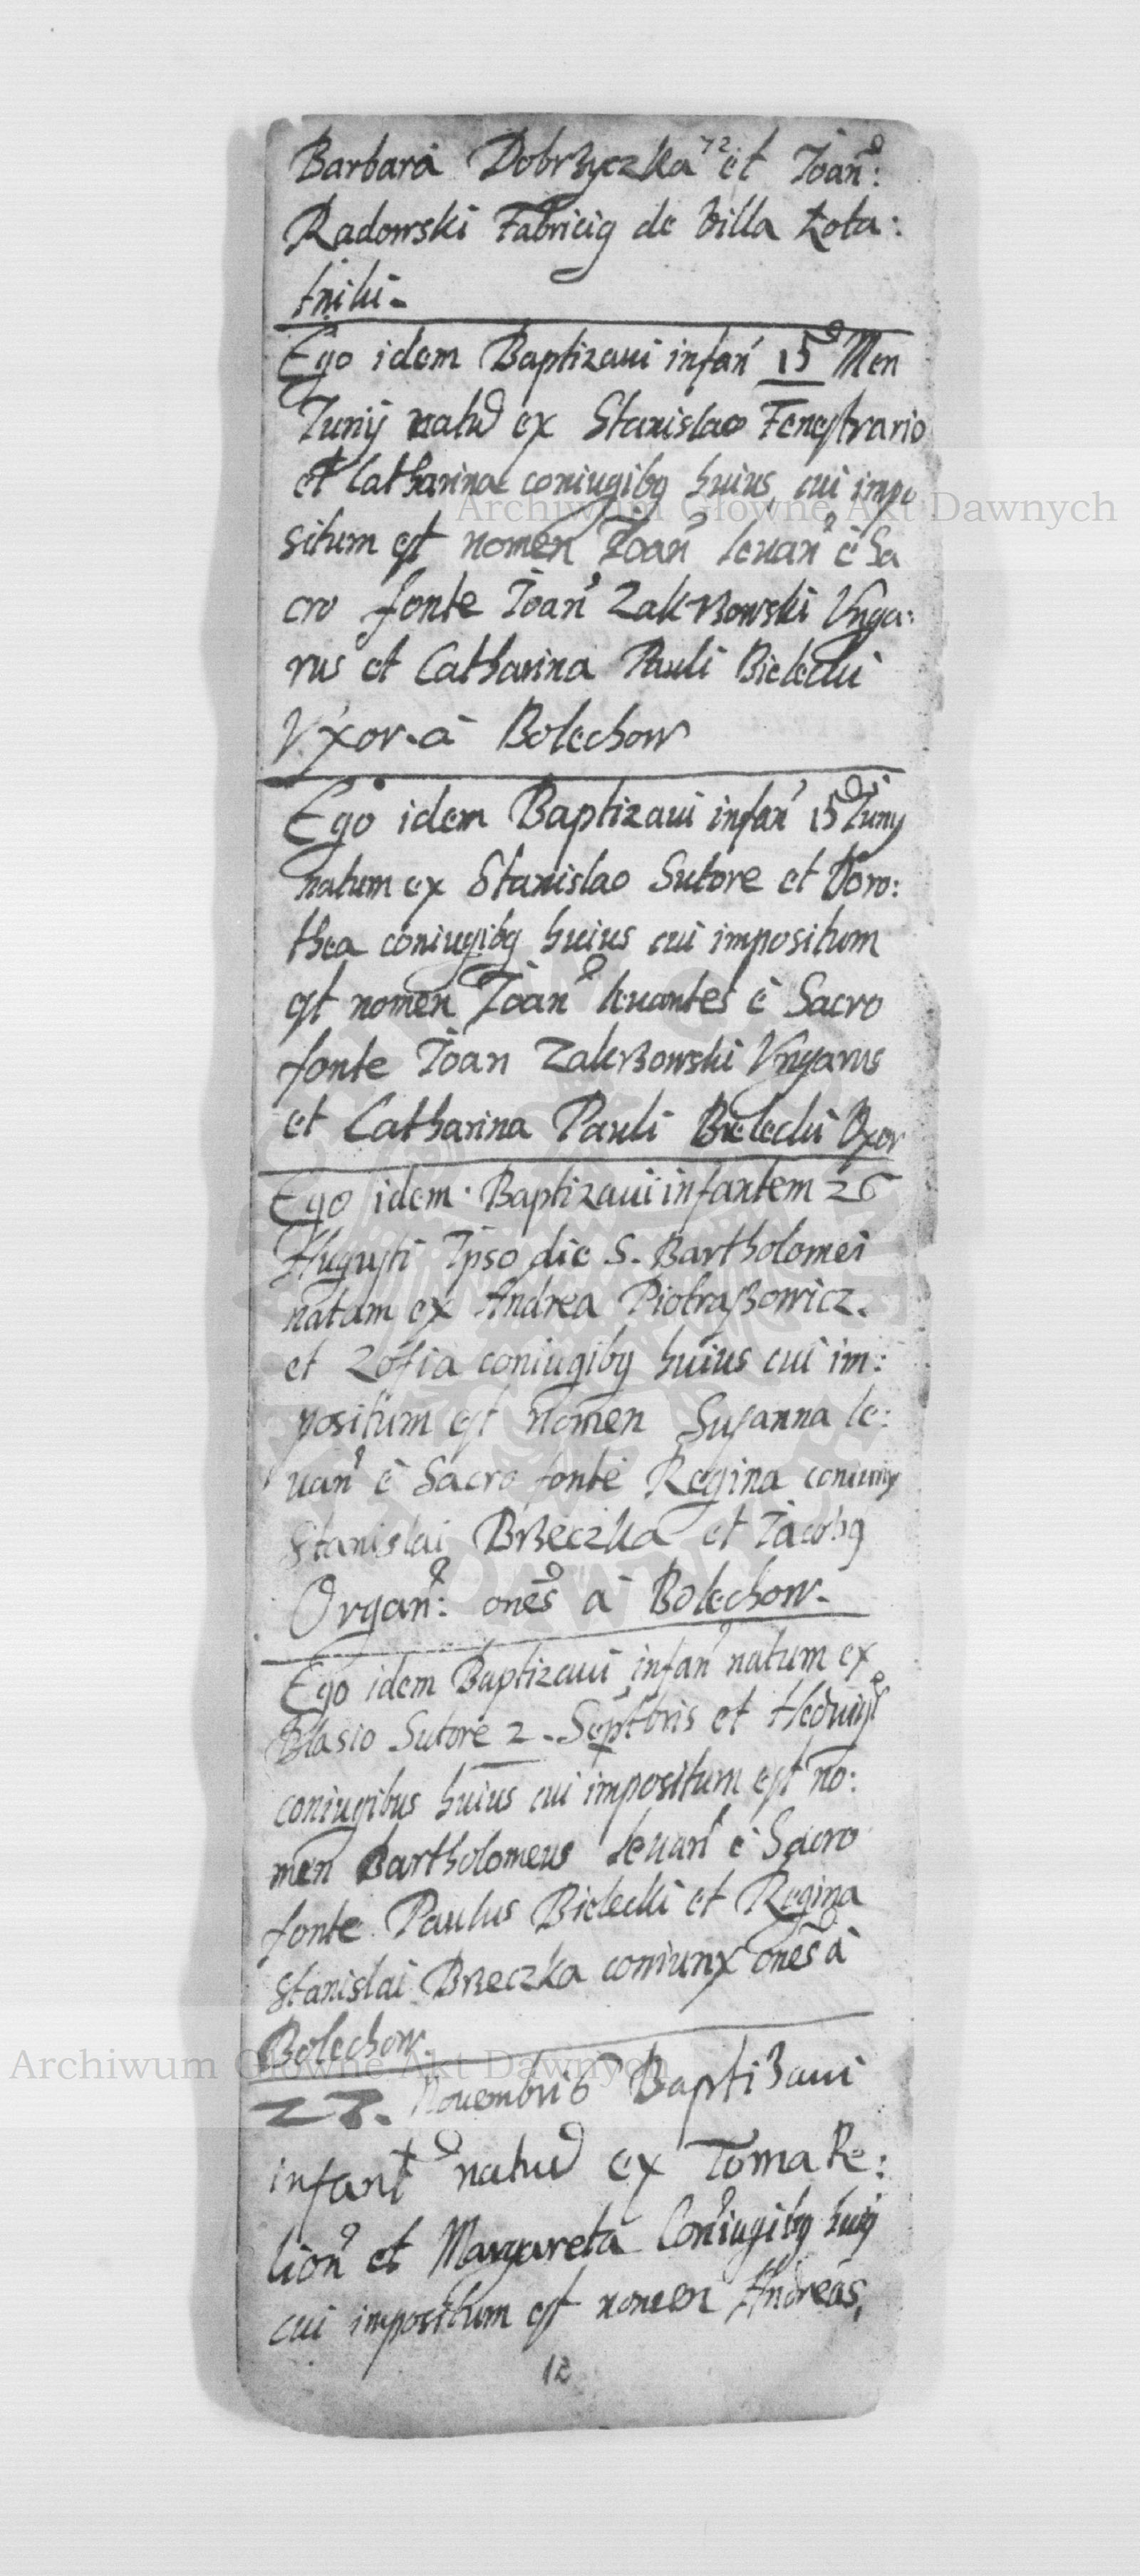 72
Barbara Dobrzyczka et Joan:
Radowski Fabricig de Villa Rota:
tniki-
Ego idem Baptizaui infan 15 Men
Junij natu ex Stanislao Fenestrario
et Catharina coniugibg huius cui impo
Archiwum Główne Akt Dawnych
situm est nomen Joan leuan è Sa
cro fonte Joan Zakrzowski Vnga:
rus et Catharina Pauli Bielecki
Vxor à Bolechow
Ego idem Baptizaui infan 15 Juny
natum ex Stanislao Sutore et Doro:
thea coniugibg huius cui impositum
est nomen Joan leuantes è Sacro
fonte Joan Zakrzowski Vngarus
et Catharina Pauli Bielecki Vxor
Ego idem Baptizaui infantem 26
Augusti Ipso die S. Bartholomei
natam ex Andrea Piotraszowicz.
et Zofia coniugibg huius cui im:
positum est nomen Susanna le:
uan è Sacro fonte Regina
Stanislai Brzeczka et Jacobg
Organ: ones à Bolechow-
Ego idem Baptizaui infan natum ex
Blasio Sutore 2 Septbris et Hedwig
coniugibus huius cui impositum est no:
men Bartholomeus leuan è Sacro
fonte Paulus Bielecki et Regina
Stanislai Brzeczka coniunx ones à
Bolechow.
Archiwum Główne Akt Dawnych
Nouembris Baptizaui
infant natu ex Toma Re:
lion et Margareta Coniugibg huig
cui impositum est nomen Andreas,
12